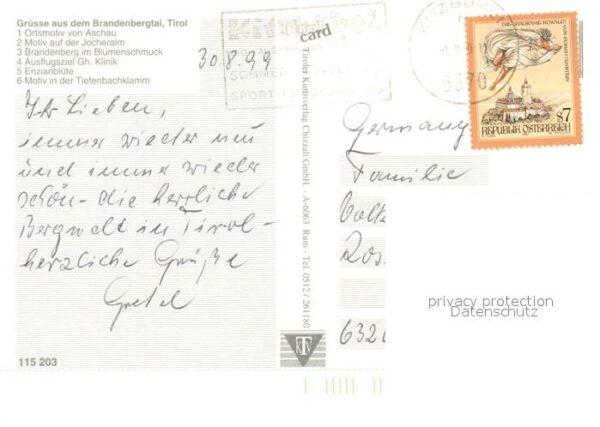 Grüsse aus dem Brandenbergtal, Tirol
1 Ortsmotiv von Aschau
2 Motiv auf der Jocheralm
3 Brandenberg im Blumenschmuck
4 Ausflugsziel Gh. Klinik
5 Enzianblüte
6 Motiv in der Tiefenbachklamm
30.8.99
Ihr Lieben,
immer wieder neu
und immer wieder
schön - die herrliche
Bergwelt in Tirol -
herzliche Grüße
Gretel
115 203
Tiroler Kunstverlag Chizzali GmbH. - A-6063 Rum - Tel. 0512 / 261180
card
SOMMER
SPORT
6370
S7
REPUBLIK ÖSTERREICH
Germany
Familie
632
privacy protection
Datenschutz